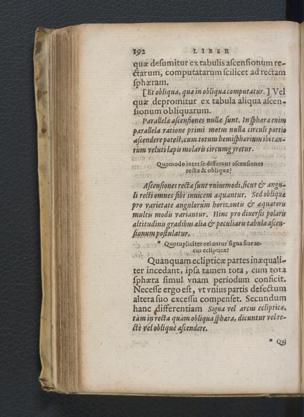 192 LIBER
quæ desumitur ex tabulis ascensionum re-
ctarum, computatarum scilicet ad rectam
sphæram.
[Et obliqua, quæ in obliqua computatur.] Vel
quæ depromitur ex tabula aliqua ascen-
sionum obliquarum.
Parallela ascensiones nullæ sunt. In sphæra enim
parallela ratione primi motus nulla circuli portio
ascendere potest, cum totum hemisphærium
veluti lapis molaris circumgyretur.
Quomodo inter se differunt ascensiones
recta & obliqua?
Ascensiones recta sunt uniusmodi, sicut & angu-
li recti omnes sibi inuicem aquantur. Sed obliqua
pro varietate angulorum horizontis & aquatoris
multis modis variantur. Hinc pro diuersis polaris
altitudinis gradibus alia & peculiari tabula ascen-
sionum postulatur.
* Quotupliciter oriantur signa siue ar-
cus eclipticæ?
Quanquam eclipticæ partes inæquali-
ter incedant, ipsa tamen tota, cum tota
sphæra simul vnam periodum conficit.
Necesse ergo est, vt vnius partis defectum
altera suo excessu compenset. Secundum
hanc differentiam Signa vel arcus eclipticæ,
tam in recta quam obliqua sphæra, dicuntur vel re-
ctè vel obliquè ascendere.
* Qui